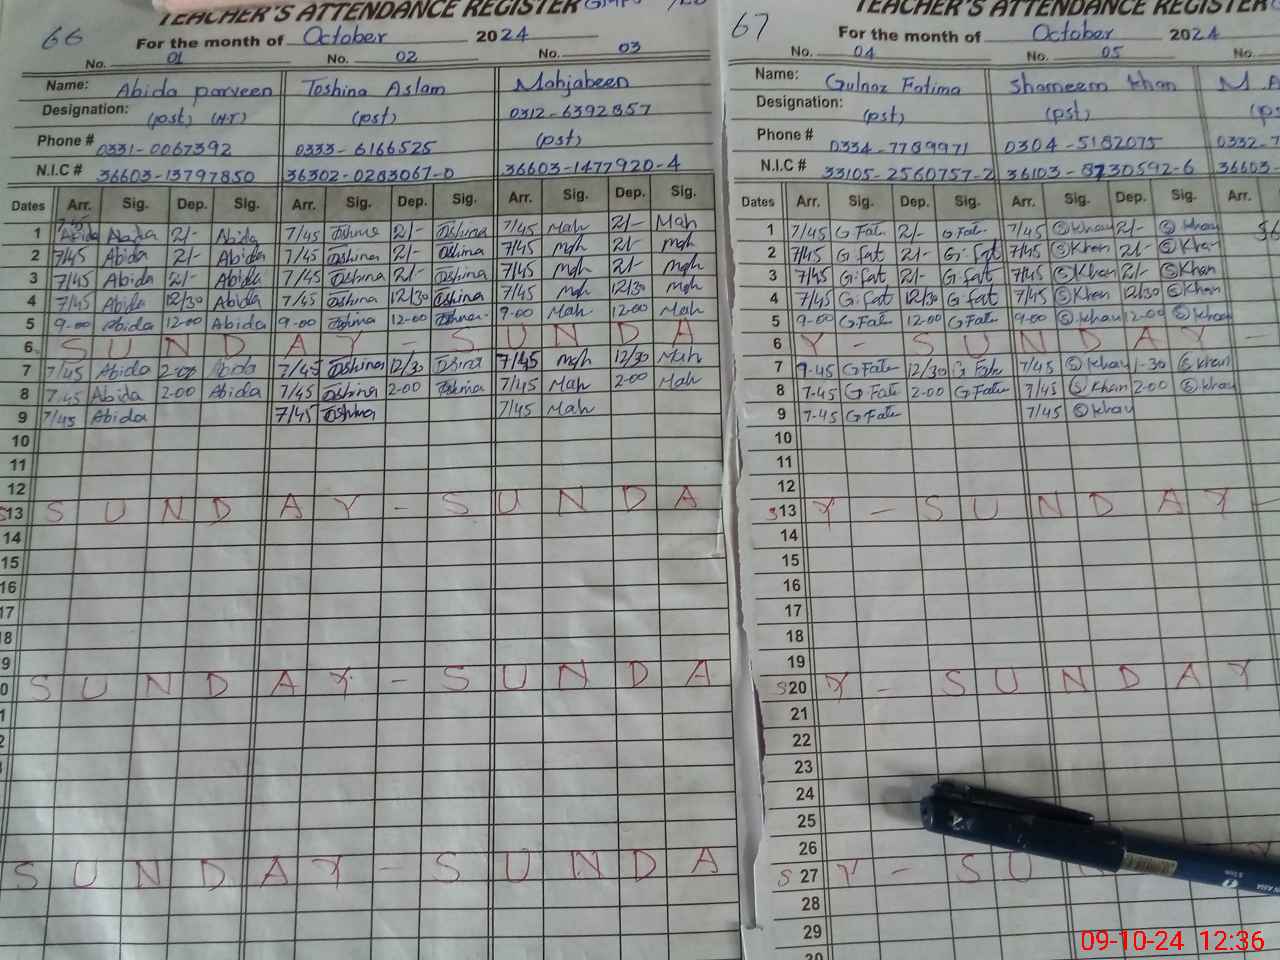 TEACHER'S ATTENDANCE REGISTER
66
For the month of October 2024
No. 01 No. 02 No. 03
Name: Abida parveen Toshina Aslam Mahjabeen
Designation: (pst) (H.T) (pst) 0312-6392857
Phone # 0331-0067392 0333-6166525 (pst)
N.I.C # 36603-13797850 36302-0283067-0 36603-1477920-4
Dates Arr. Sig. Dep. Sig. Arr. Sig. Dep. Sig. Arr. Sig. Dep. Sig.
1 7/45 Abida Abida 2/- Abida 7/45 Toshina 2/- Toshina 7/45 Mah 2/- Mah
2 7/45 Abida 2/- Abida 7/45 Toshina 2/- Toshina 7/45 mgh 2/- mgh
3 7/45 Abida 2/- Abida 7/45 Toshina 2/- Toshina 7/45 mgh 2/- mgh
4 7/45 Abida 12/30 Abida 7/45 Toshina 12/30 Toshina 7/45 mgh 12/30 mgh
5 9-00 Abida 12-00 Abida 9-00 Toshina 12-00 9-00 Mah 12-00 Mah
6 S U N D A Y - S U N D A
7 7/45 Abida 2-00 Abida 7/45 Toshina 12/30 Toshina 7/45 mgh 12/30 Mah
8 7-45 Abida 2-00 Abida 7/45 Toshina 2-00 Toshina 7/45 Mah 2-00 Mah
9 7/45 Abida 7/45 Toshina 7/45 Mah
10
11
12
S13 S U N D A Y - S U N D A
14
15
16
17
18
9
0 S U N D A Y - S U N D A
1
2
S U N D A Y - S U N D A
TEACHER'S ATTENDANCE REGISTER
67
For the month of October 2024
No. 04 No. 05 No.
Name: Gulnaz Fatima Shameem Khan M.
Designation: (pst) (pst)
Phone # 0334-7789971 0304-5182075 0332-7
N.I.C # 33105-2560757-2 36103-8730592-6 36603-
Dates Arr. Sig. Dep. Sig. Arr. Sig. Dep. Sig. Arr.
1 7/45 G Fat 2/- G Fat 7/45 S khan 2/- S khan
2 7/45 G fat 2/- G. Fat 7/45 S Khan 2/- S Khan
3 7/45 G.fat 2/- G.fat 7/45 S Khan 2/- S Khan
4 7/45 G.fat 12/30 G fat 7/45 S Khan 12/30 S Khan
5 9-00 G Fat 12-00 G Fat 9-00 S khan 12-00 S khan
6 Y - S U N D A Y -
7 7-45 G Fat 12/30 G Fat 7/45 S khan 1-30 S khan
8 7-45 G Fat 2-00 G Fat 7/45 S Khan 2-00 S khan
9 7-45 G Fat 7/45 S khan
10
11
12
S13 Y - S U N D A Y -
14
15
16
17
18
19
S20 Y - S U N D A Y
21
22
23
24
25
26
S 27 Y - S U
28
29
30
09-10-24 12:36